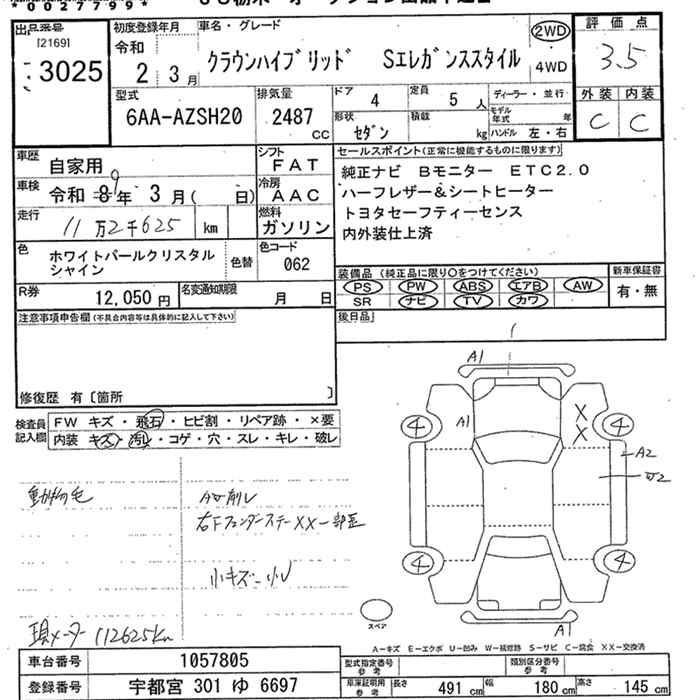 *00277998*
出品番号 初度登録年月 車名・グレード 2WD 評価点
[2169] 3025 令和 2 3月 クラウンハイブリッド Sエレガンススタイル 4WD 3.5
型式 排気量 ドア 4 定員 5人 ディーラー・並行 外装 内装
6AA-AZSH20 2487cc 形状 セダン 積載 kg モデル年式 年 ハンドル 左・右 C C
車歴 自家用 シフト FAT セールスポイント(正常に機能するものに限ります)
車検 令和 9年 3月( 日) 冷房 AAC 純正ナビ Bモニター ETC2.0
走行 11万2千625 km 燃料 ガソリン ハーフレザー&シートヒーター
トヨタセーフティーセンス
内外装仕上済
色 ホワイトパールクリスタルシャイン 色替 色コード 062
装備品 (純正品に限り○をつけてください) 新車保証書
PS PW ABS エアB AW 有・無
SR ナビ TV カワ
R券 12,050円 名変通知期限 月 日
後日品
注意事項申告欄(不具合内容等は具体的に記入して下さい)
修復歴 有〔箇所 〕
検査員記入欄 FW キズ・飛石・ヒビ割・リペア跡・×要
内装 キズ・汚レ・コゲ・穴・スレ・キレ・破レ
A1
A1 X X
4 4
A2
4 4
A1
スペア
動物の毛
右Fフェンダーステー XX 一部歪
小キズ 小U
現メーター 112625km
A-キズ E-エクボ U-凹み W-補修跡 S-サビ C-腐食 XX-交換済
車台番号 1057805 型式指定番号 参考 類別区分番号 参考
登録番号 宇都宮 301 ゆ 6697 車庫証明用 参考 長さ 491cm 幅 180cm 高さ 145cm